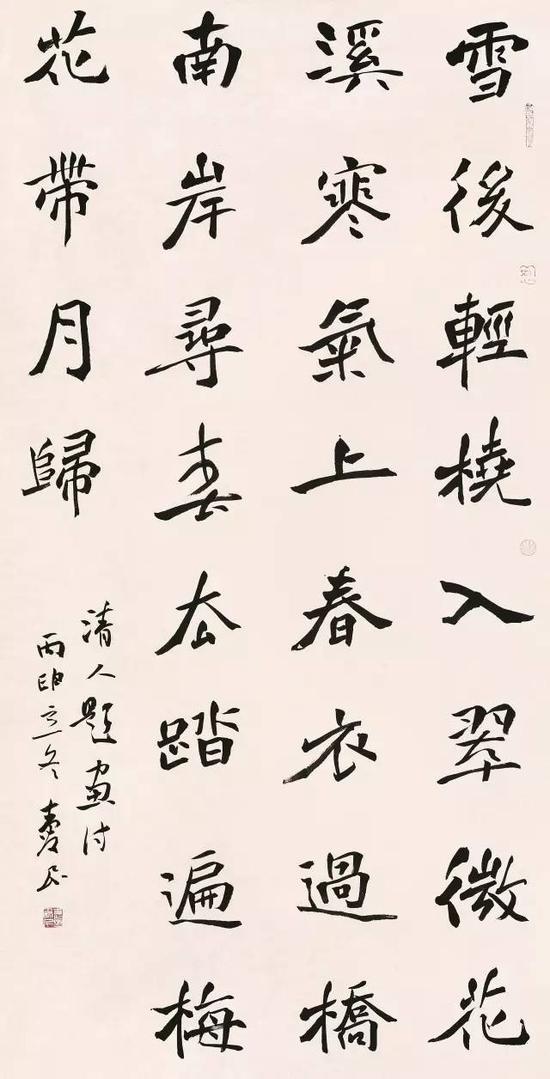 雪後輕橈入翠微花
溪寒氣上春衣過橋
南岸尋春去踏遍梅
花帶月歸
清人題畫詩
丙申立冬